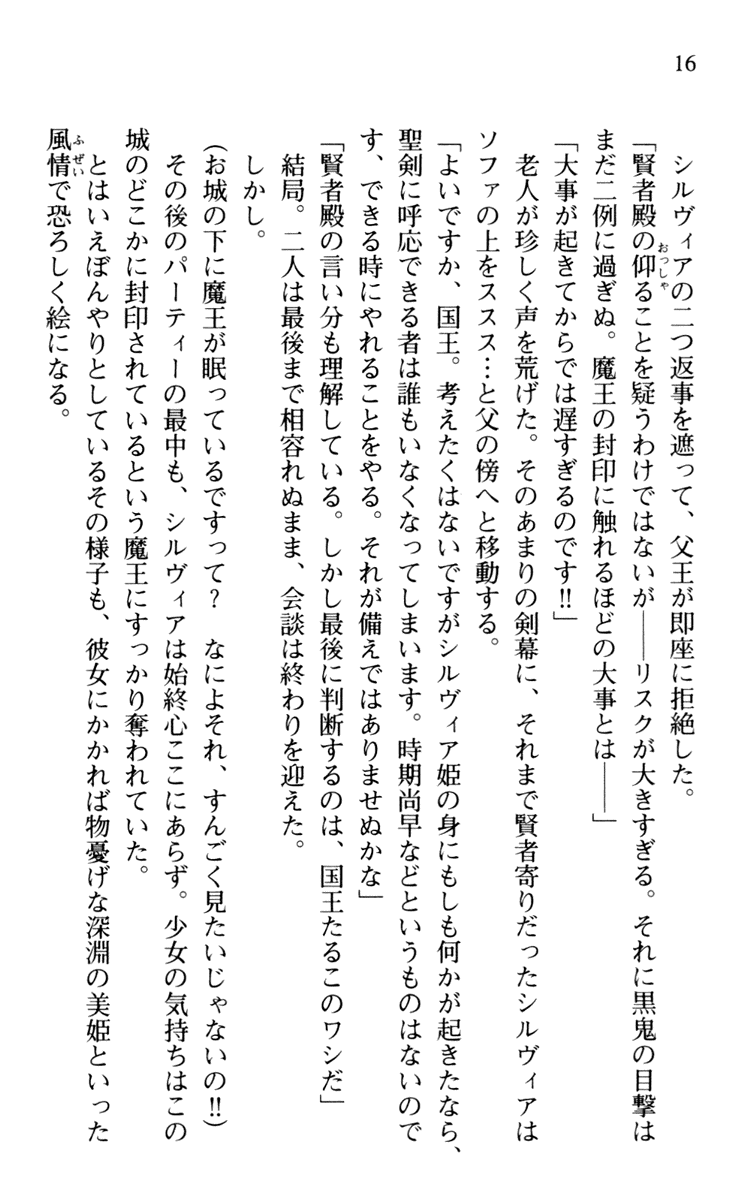 16
シルヴィアの二つ返事を遮って、父王が即座に拒絶した。
「賢者殿の仰ることを疑うわけではないが――リスクが大きすぎる。それに黒鬼の目撃は
まだ二例に過ぎぬ。魔王の封印に触れるほどの大事とは――」
「大事が起きてからでは遅すぎるのです!!」
老人が珍しく声を荒げた。そのあまりの剣幕に、それまで賢者寄りだったシルヴィアは
ソファの上をススス…と父の傍へと移動する。
「よいですか、国王。考えたくはないですがシルヴィア姫の身にもしも何かが起きたなら、
聖剣に呼応できる者は誰もいなくなってしまいます。時期尚早などというものはないので
す、できる時にやれることをやる。それが備えではありませぬかな」
「賢者殿の言い分も理解している。しかし最後に判断するのは、国王たるこのワシだ」
結局。二人は最後まで相容れぬまま、会談は終わりを迎えた。
しかし。
(お城の下に魔王が眠っているですって? なによそれ、すんごく見たいじゃないの!!)
その後のパーティーの最中も、シルヴィアは始終心ここにあらず。少女の気持ちはこの
城のどこかに封印されているという魔王にすっかり奪われていた。
とはいえぼんやりとしているその様子も、彼女にかかれば物憂げな深淵の美姫といった
風情で恐ろしく絵になる。
おっしゃ
ふぜい